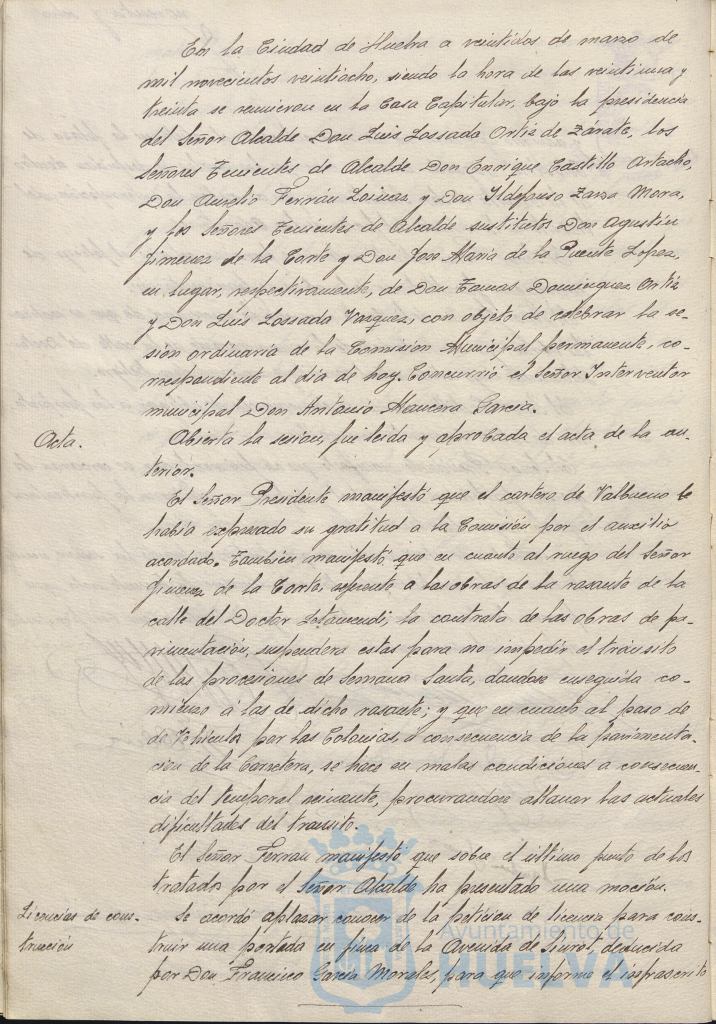 En la Ciudad de Huelva a veintidos de marzo de
mil novecientos veintiocho, siendo la hora de las veintiuna y
treinta se reunieron en la Casa Capitular, bajo la presidencia
del Señor Alcalde Don Luis Lossada Ortiz de Zárate, los
Señores Tenientes de Alcalde Don Enrique Castillo Artacho,
Don Aurelio Ferrán Loinaz y Don Ildefonso Zarza Mora,
y los Señores Tenientes de Alcalde sustitutos Don Agustín
Jimenez de la Corte y Don Jose Maria de la Puente Lopez,
en lugar, respectivamente, de Don Tomas Dominguez Ortiz
y Don Luis Lossada Vazquez, con objeto de celebrar la se-
sion ordinaria de la Comision Municipal permanente, co-
rrespondiente al dia de hoy. Concurrió el Señor Interventor
municipal Don Antonio Mancera Garcia.
Acta. Abierta la sesion, fue leida y aprobada el acta de la an-
terior.
El Señor Presidente manifestó que el cartero de Valbueno le
habia expresado su gratitud a la Comisión por el auxilio
acordado. También manifestó, que en cuanto al ruego del Señor
Jimenez de la Corte, referente a las obras de la rasante de la
calle del Doctor Letamendi; la contrata de las obras de pa-
vimentación, suspendera estas para no impedir el tránsito
de las procesiones de Semana Santa, dandose enseguida co-
mienzo á las de dicho rasante; y que en cuanto al paso de
de Vehiculos por las Colonias, a consecuencia de la pavimenta-
cion de la Carretera, se hace en malas condiciones a consecuen-
cia del temporal reinante, procurandose allanar las actuales
dificultades del transito.
El Señor Ferran manifestó que sobre el último punto de los
tratados por el Señor Alcalde ha presentado una moción.
Licencias de cons- Se acordó aplazar conocer de la peticion de licencia para cons-
trucción truir una portada en finca de la Avenida de Siurot, deducida
por Don Francisco Garcia Morales, para que informe el infrascrito
Ayuntamiento de
HUELVA